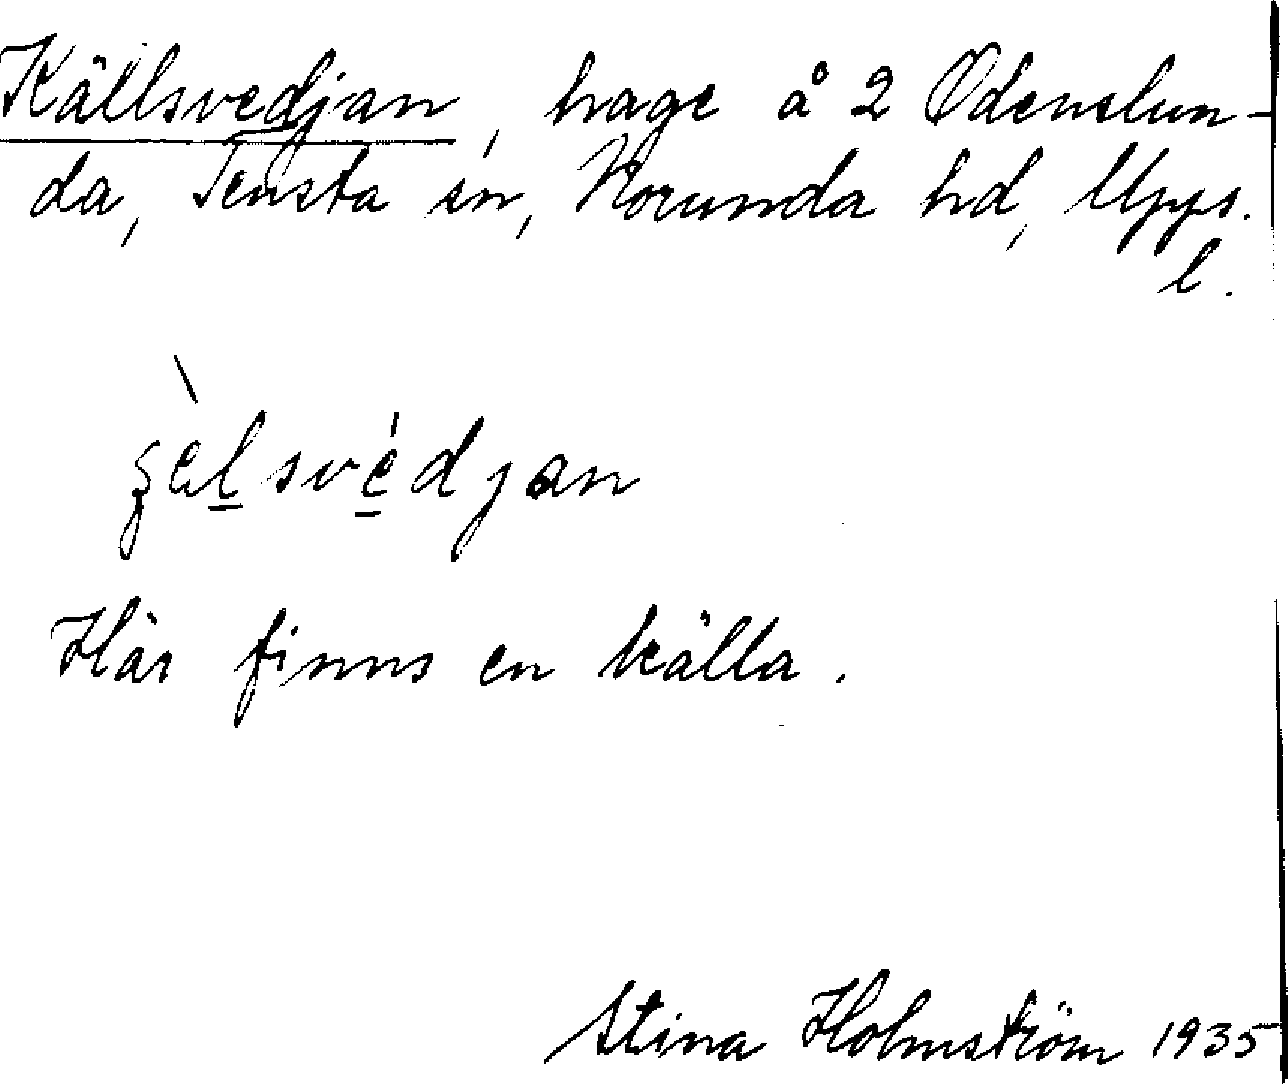 Källsvedjan, hage å 2 Ödenslun-
da, Tensta sn, Norunda hd, Upps.
l.
ʂèlsvédjan
Här finns en källa.
Stina Holmström 1935